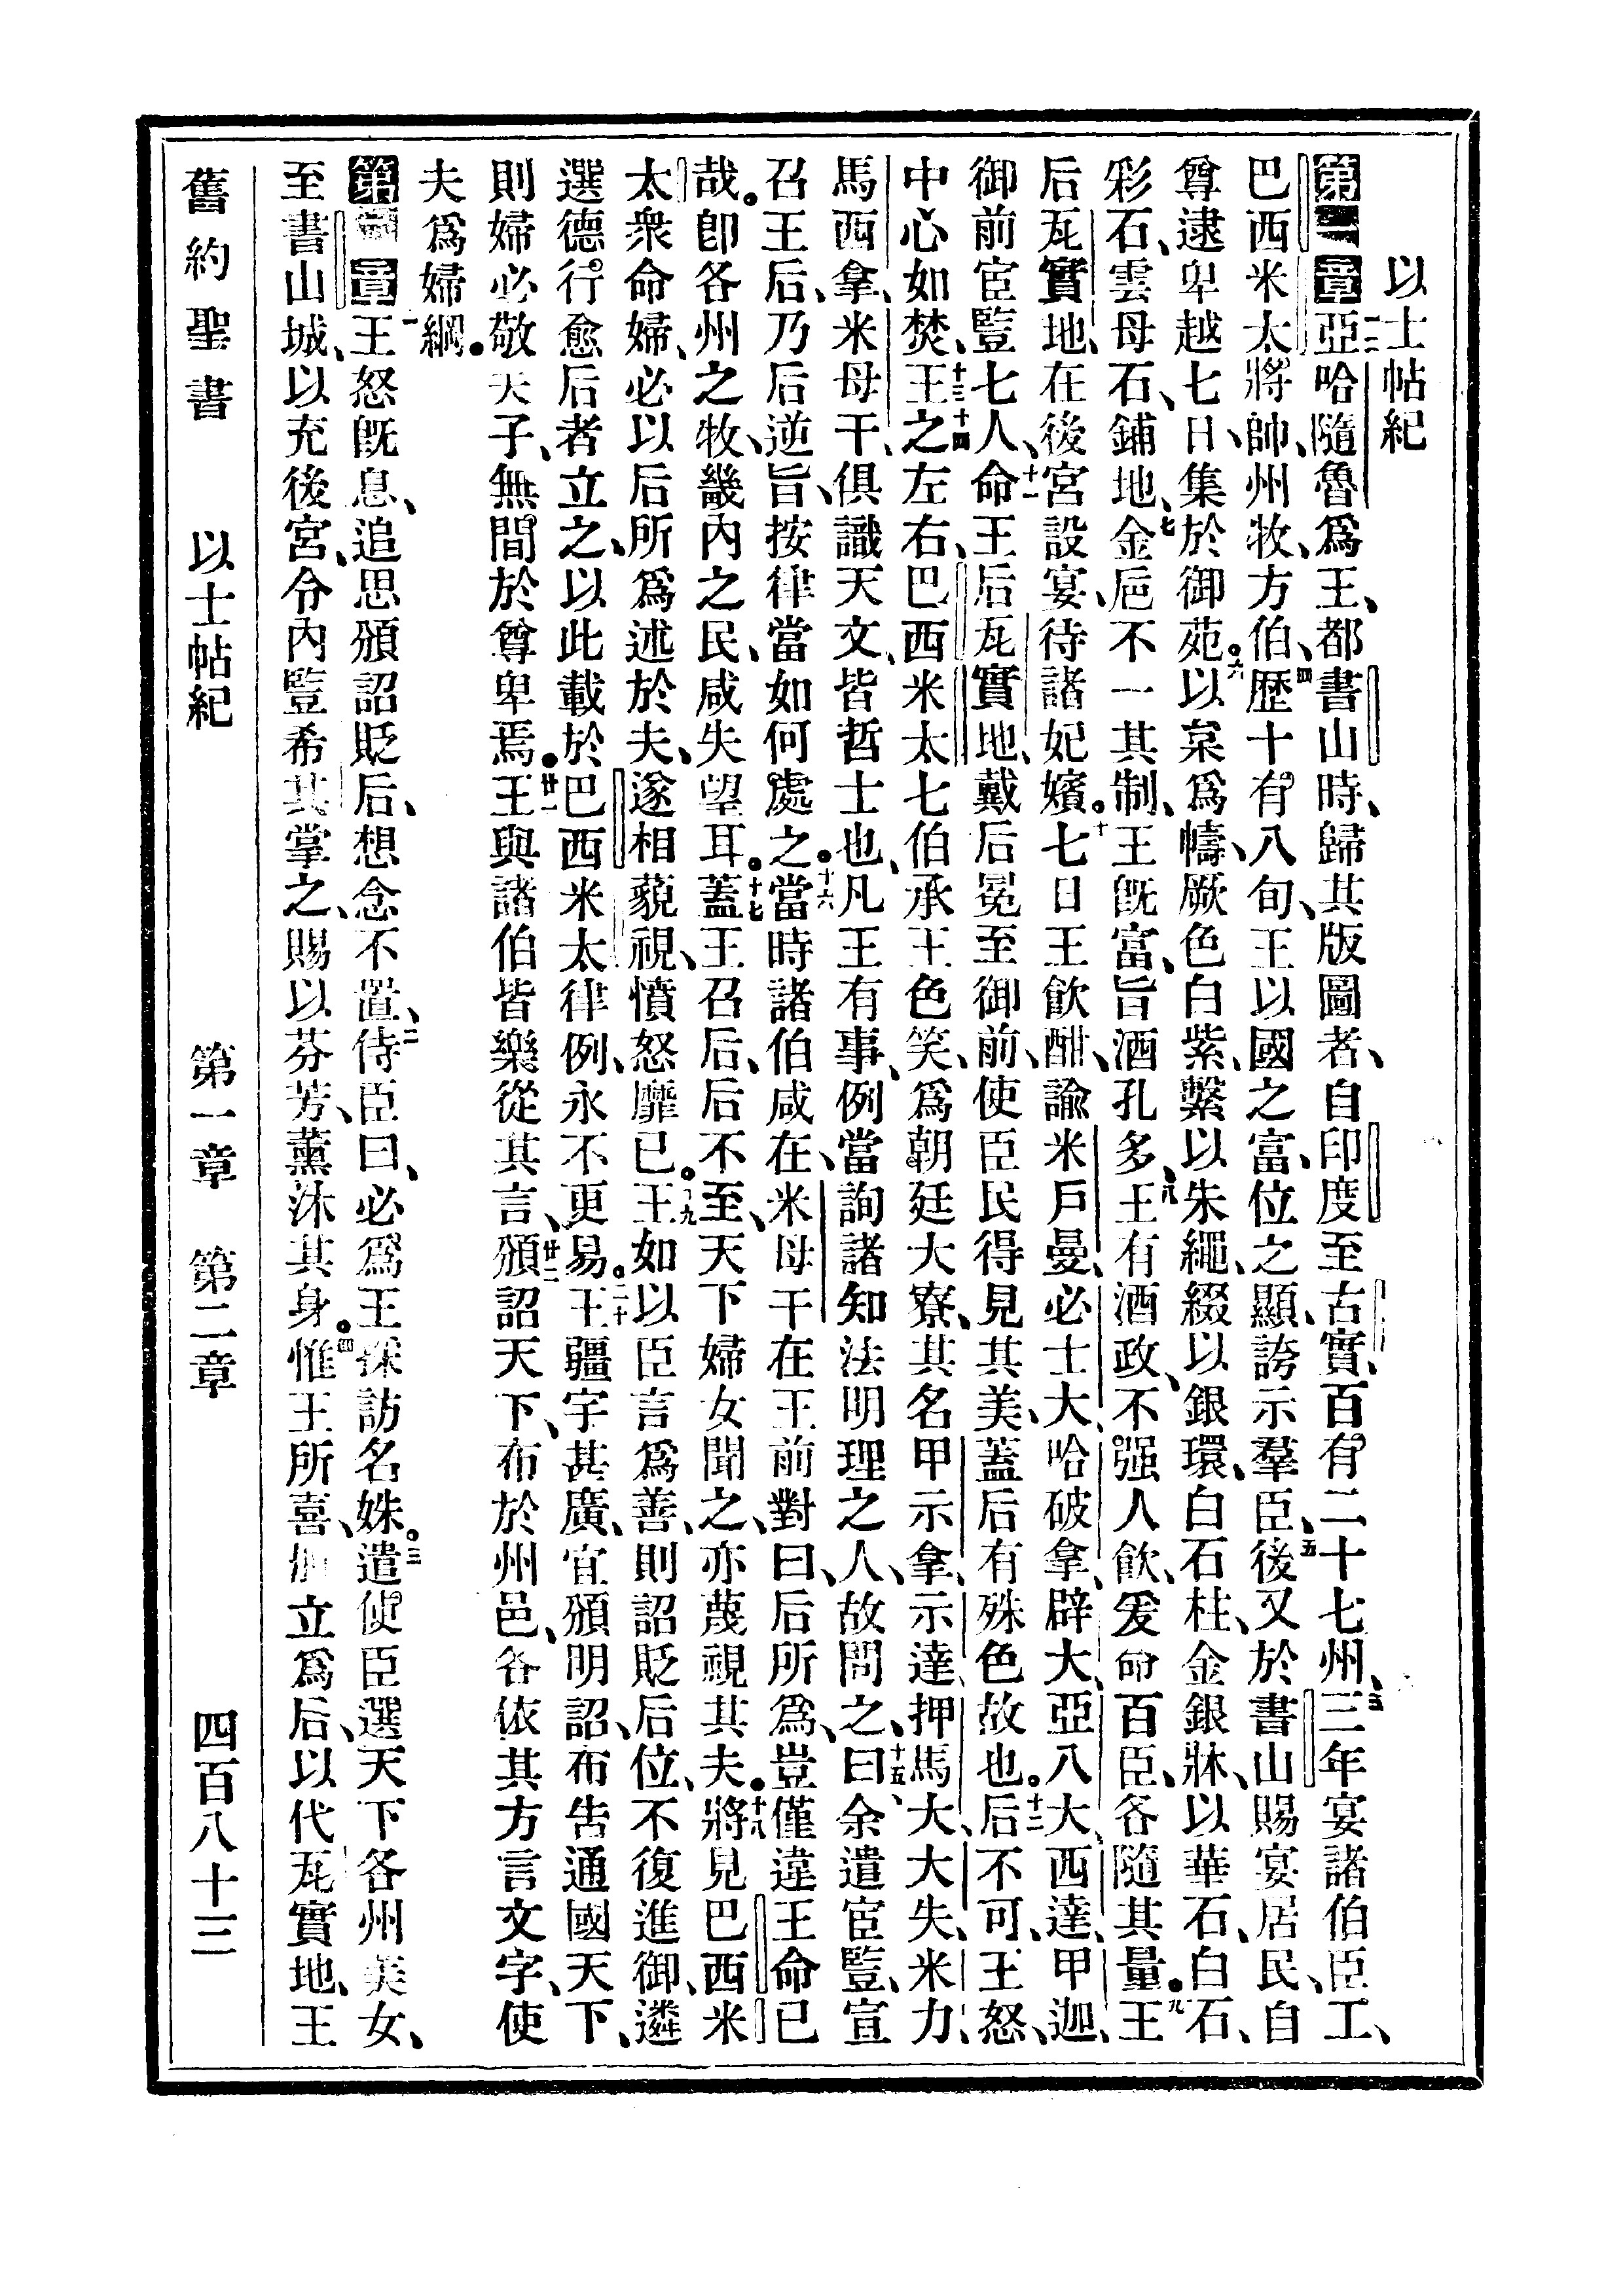 以士帖紀
第一章一二亞哈隨魯爲王、都書山時、歸其版圖者、自印度至古實、百有二十七州、三三年宴諸伯臣工、
巴西米太將帥、州牧、方伯、四歷十有八旬、王以國之富、位之顯、誇示羣臣、五後又於書山賜宴居民、自
尊逮卑越七日、集於御苑。六以枲爲幬、厥色白紫、繫以朱繩、綴以銀環、白石柱、金銀牀、以華石、白石、
彩石、雲母石、鋪地、七金巵不一其制、王旣富、旨酒孔多、八王有酒政、不强人飮、爰命百臣、各隨其量。九王
后瓦實地、在後宮設宴、待諸妃嬪。十七日王飮酣、諭米戶曼、必士大、哈破拿、辟大、亞八大、西達、甲迦、
御前宦豎七人、十一命王后瓦實地、戴后冕至御前、使臣民得見其美、蓋后有殊色故也。十二后不可、王怒、
中心如焚、十三十四王之左右、巴西米太七伯承王色笑、爲朝廷大寮、其名甲示拿、示達、押馬大、大失、米力、
馬西拿、米母干、俱識天文、皆哲士也、凡王有事、例當詢諸知法明理之人、故問之、十五曰、余遣宦豎、宣
召王后、乃后逆旨、按律當如何處之。十六當時諸伯咸在、米母干在王前對曰、后所爲、豈僅違王命已
哉。卽各州之牧、畿內之民、咸失望耳。十七蓋王召后、后不至、天下婦女聞之、亦蔑視其夫。十八將見巴西米
太衆命婦、必以后所爲述於夫、遂相藐視、憤怒靡已。十九王如以臣言爲善、則詔貶后位、不復進御、遴
選德行愈后者立之、以此載於巴西米太律例、永不更易。二十王疆宇甚廣、宜頒明詔、布告通國天下、
則婦必敬夫子、無間於尊卑焉。廿一王與諸伯皆樂從其言、廿二頒詔天下、布於州邑、各依其方言文字、使
夫爲婦綱。
第二章一王怒旣息、追思頒詔貶后、想念不置、二侍臣曰、必爲王採訪名姝。三遣使臣選天下各州美女、
至書山城、以充後宮、令內豎希其掌之、賜以芬芳、薰沐其身。四惟王所喜、立爲后、以代瓦實地、王
舊約聖書　以士帖紀　第一章　第二章　四百八十三